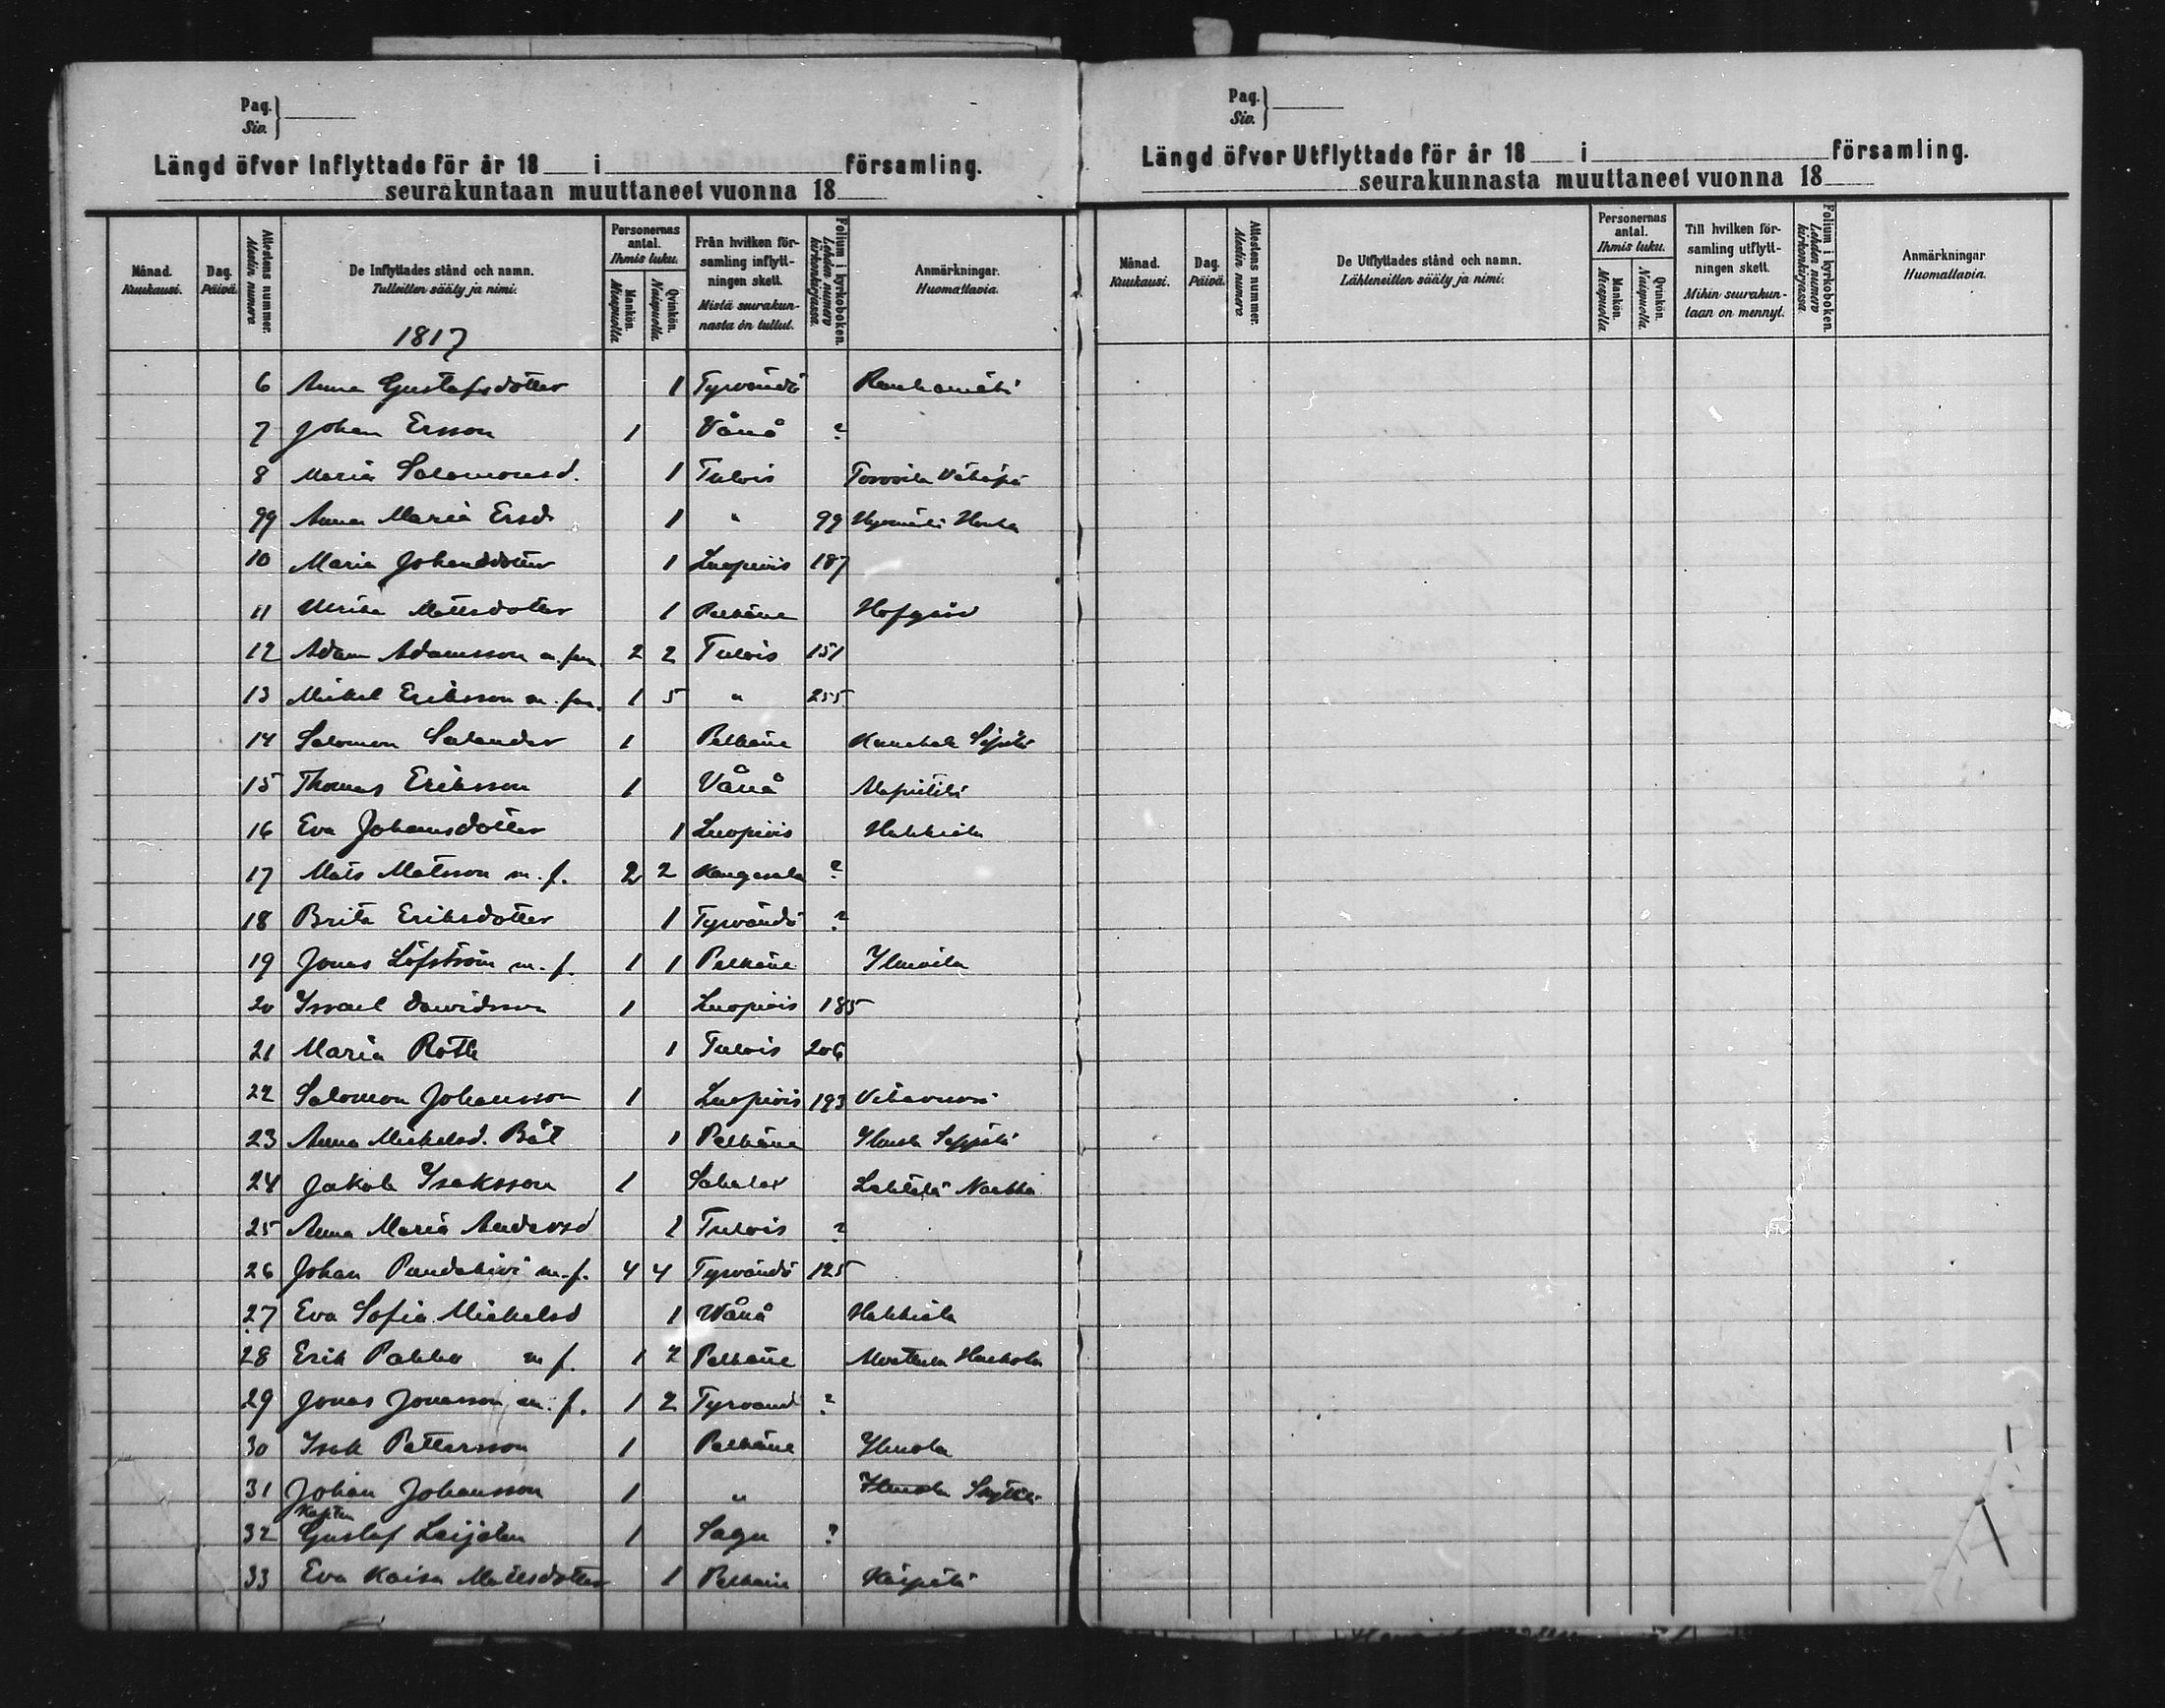 Pag.
Siv.
Längd öfver Inflyttade för år 18 i församling.
seurakuntaan muuttaneet vuonna 18
Månad. Kuukausi. Dag. Päivä. Attestens nummer. Atestin numero. De Inflyttades stånd och namn. Tulleitten sääty ja nimi. Personernas antal. Ihmis luku. Mankön. Miespuolia. Qvinkön. Naispuolia. Från hvilken församling inflyttningen skett. Mistä seurakunnasta on tullut. Folium i kyrkoboken. Lehden numero kirkonkirjassa. Anmärkningar. Huomattavia.
1817
6 Anna Gustafsdotter 1 Tyrvändö
7 Johan Ersson 1 Vånå ?
8 Maria Salomonsd. 1 Tulois
99 Anna Maria Ersd. 1 " 99
10 Maria Johansdotter 1 Luopiois 187
11 Ulrika Mattsdotter 1 Pelkäne Hofgård
12 Adam Adamsson m. fam. 2 2 Tulois 151
13 Mikel Eriksson m. fam. 1 5 " 255
14 Salomon Salander 1 Pelkäne
15 Thomas Eriksson 1 Vånå
16 Eva Johansdotter 1 Luopiois Hakkila
17 Mats Matsson m. f. 2 2 Kangasala ?
18 Brita Eriksdotter 1 Tyrvändö ?
19 Jonas Löfström m. f. 1 1 Pelkäne
20 Israel Davidsson 1 Luopiois 185
21 Maria Roth 1 Tulois 206
22 Salomon Johansson 1 Luopiois 193
23 Anna Michelsd. Båt 1 Pelkäne Seppälä
24 Jakob Isaksson 1 Sahalax
25 Anna Maria Andersd 1 Tulois ?
26 Johan m. f. 4 4 Tyrvändö 125
27 Eva Sofia Michelsd 1 Wånå Hakkila
28 Erik m f. 1 2 Pelkäne
29 Jonas Jonasson m. f. 1 2 Tyrvänd ?
30 Isak Pettersson 1 Pelkäne
31 Johan Johansson 1 "
Kapten
32 Gustaf 1 Sagu ?
33 Eva Kaisa Mattsdotter 1 Pelkäne
Pag.
Siv.
Längd öfver Utflyttade för år 18 i församling.
seurakunnasta muuttaneet vuonna 18
Månad. Kuukausi. Dag. Päivä. Attestens nummer. Atestin numero. De Utflyttades stånd och namn. Lähteneitten sääty ja nimi. Personernas antal. Ihmis luku. Mankön. Miespuolia. Qvinkön. Naispuolia. Till hvilken församling utflyttningen skett. Mihin seurakuntaan on mennyt. Folium i kyrkoboken. Lehden numero kirkonkirjassa. Anmärkningar Huomattavia.